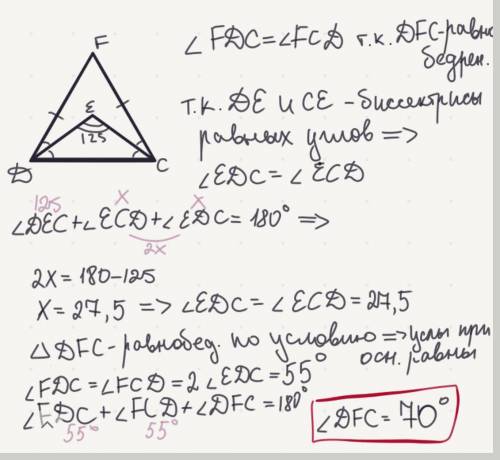 ∠FDC=∠FCD т.к. DFC-равно
бедрен.
F
E
125
D
C
т.к. DE и CE - биссектрисы
равных углов =>
∠EDC = ∠ECD
125 x x
∠DEC+∠ECD+∠EDC=180° =>
2x
2x=180-125
x=27,5 => ∠EDC=∠ECD=27,5
△DFC-равнобед. по условию => углы при
осн. равны
∠FDC=∠FCD=2∠EDC=55°
∠FDC+∠FCD+∠DFC=180°
55° 55°
∠DFC=70°